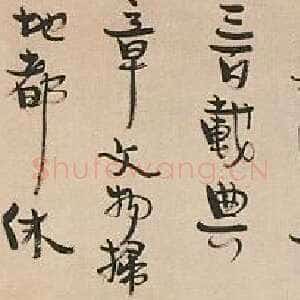 三百載典
章文物掃
地都休
Shufawang.CN